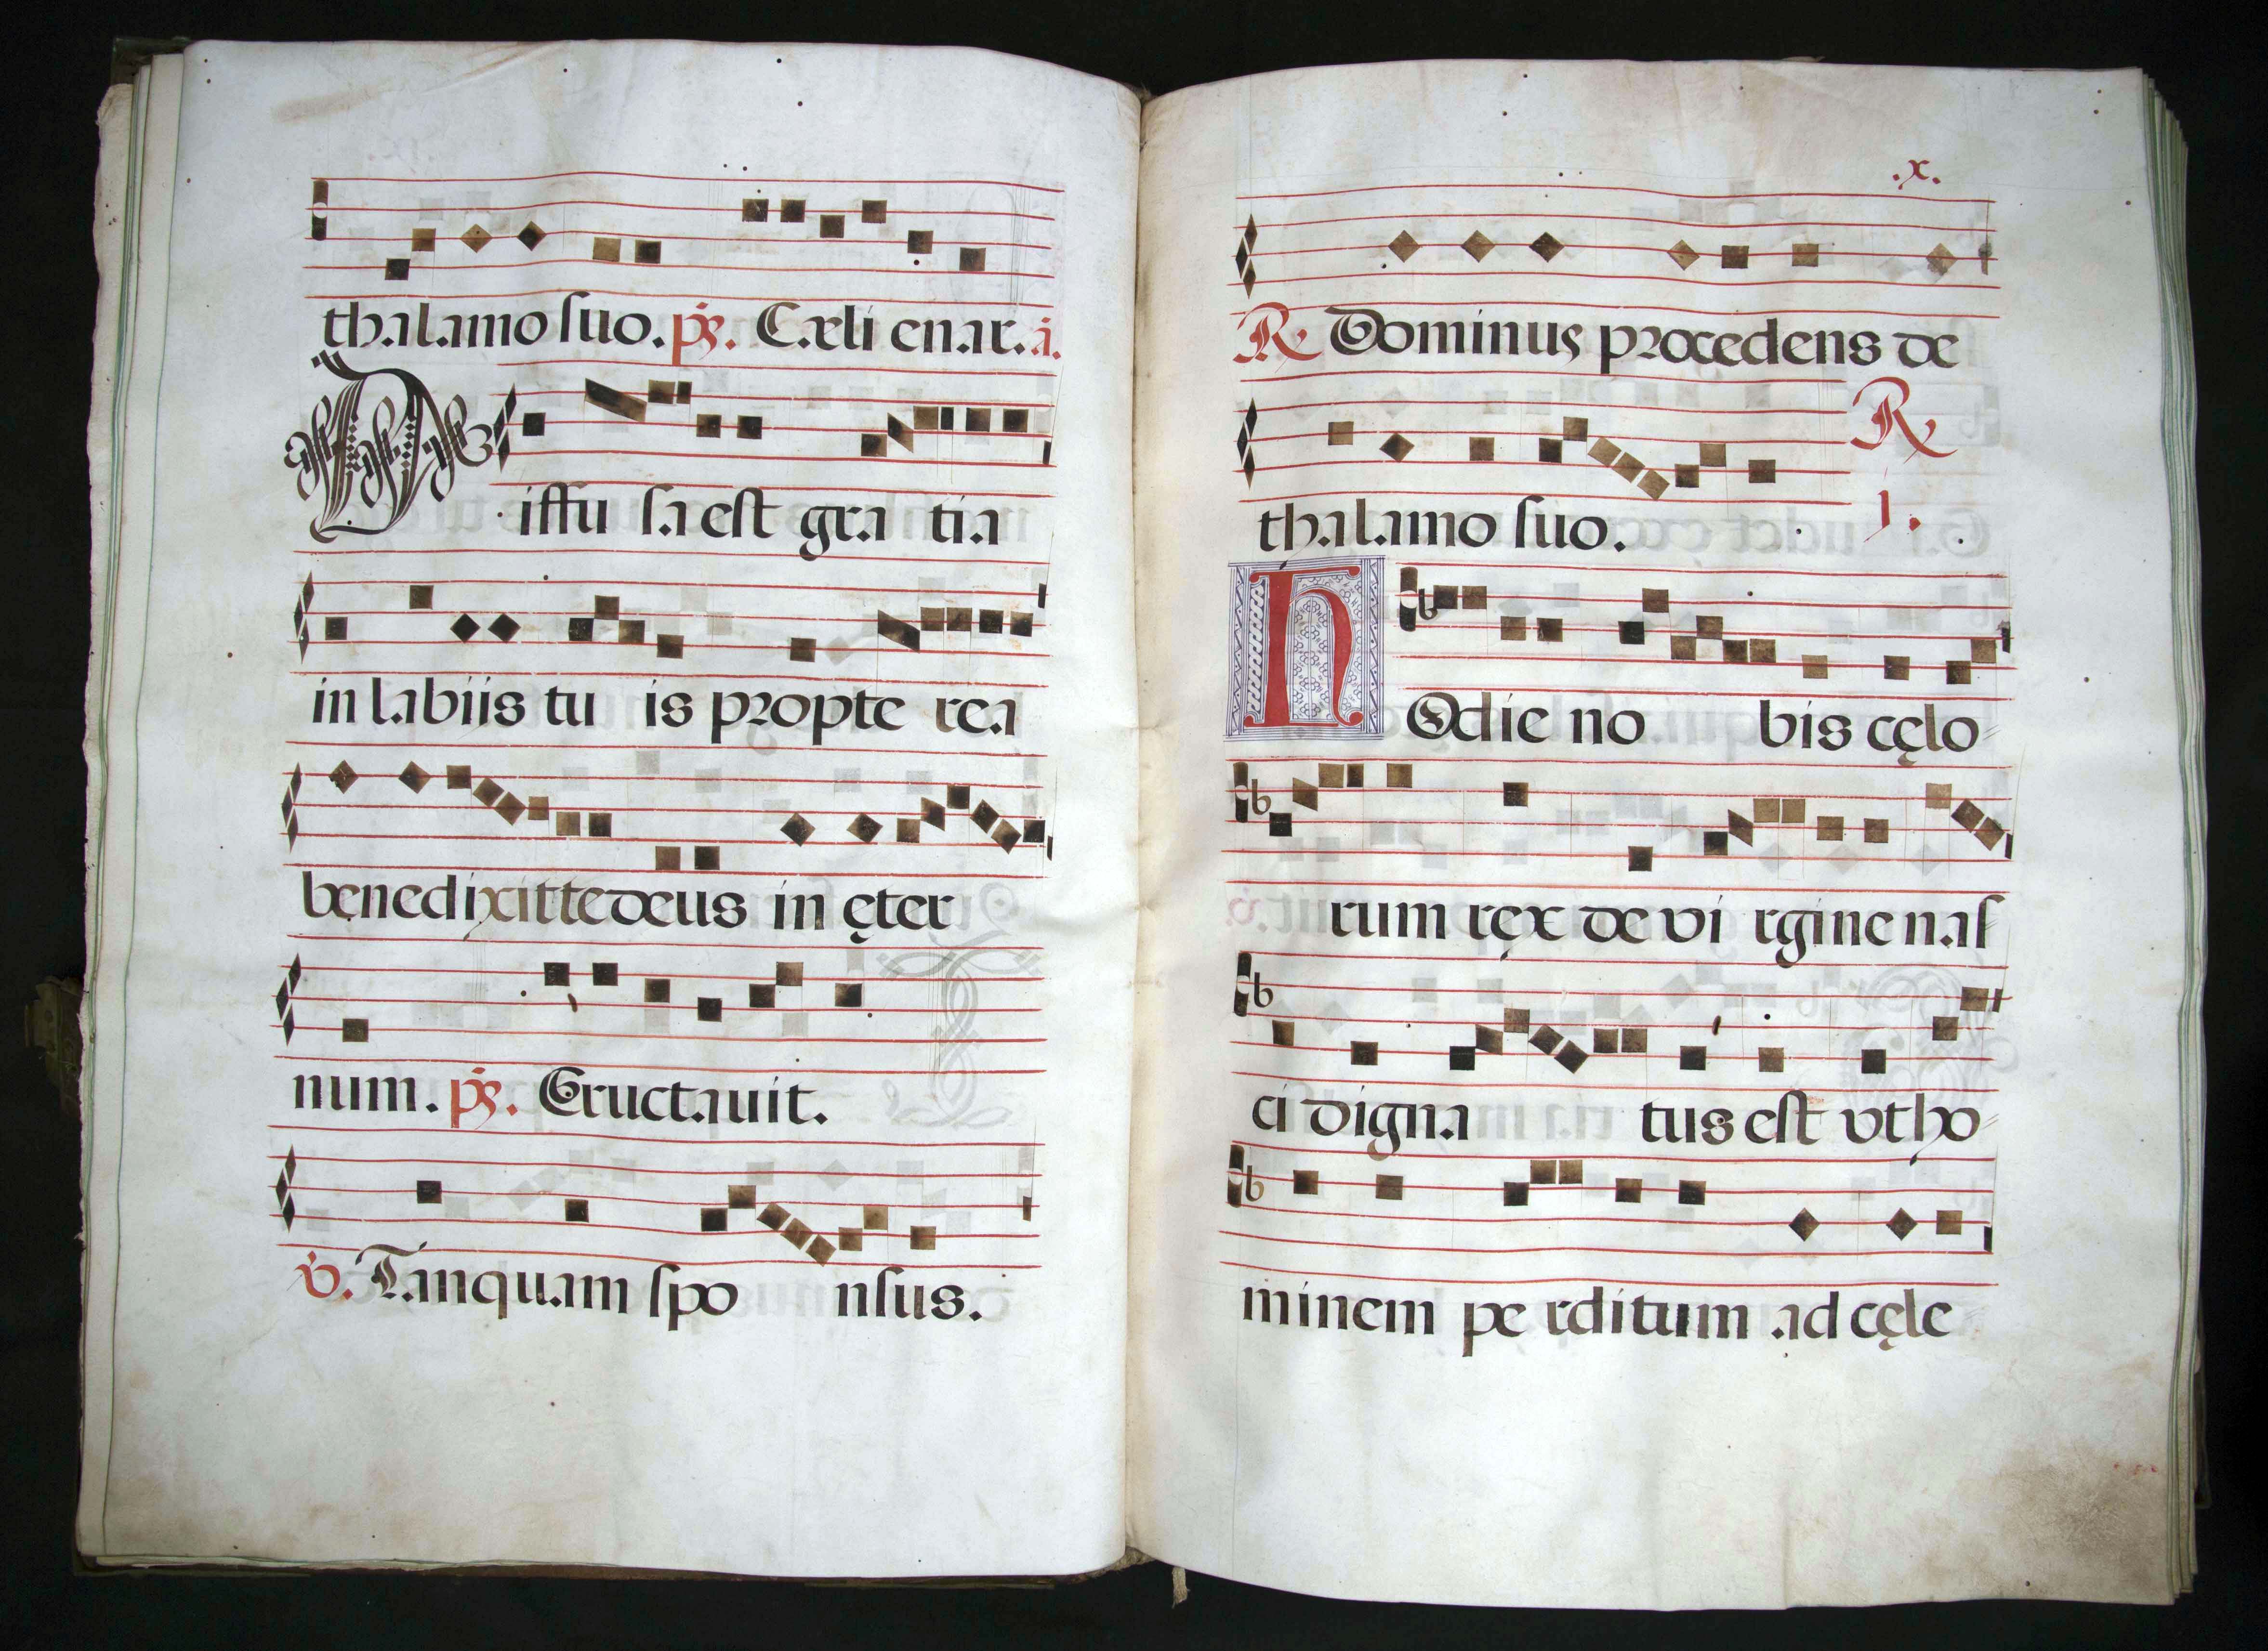 thalamo suo. ps. Cæli enar. a.
Diffu sa est gra tia
in labiis tu is propte rea
benedixit te deus in ęter
num. ps. Eructauit.
V. Tanquam spo nsus.
.x.
R Dominus procedens de
thalamo suo. R
j.
HOdie no bis cęlo
rum rex de vi rgine nas
ci digna tus est vt ho
minem pe rditum ad cęle